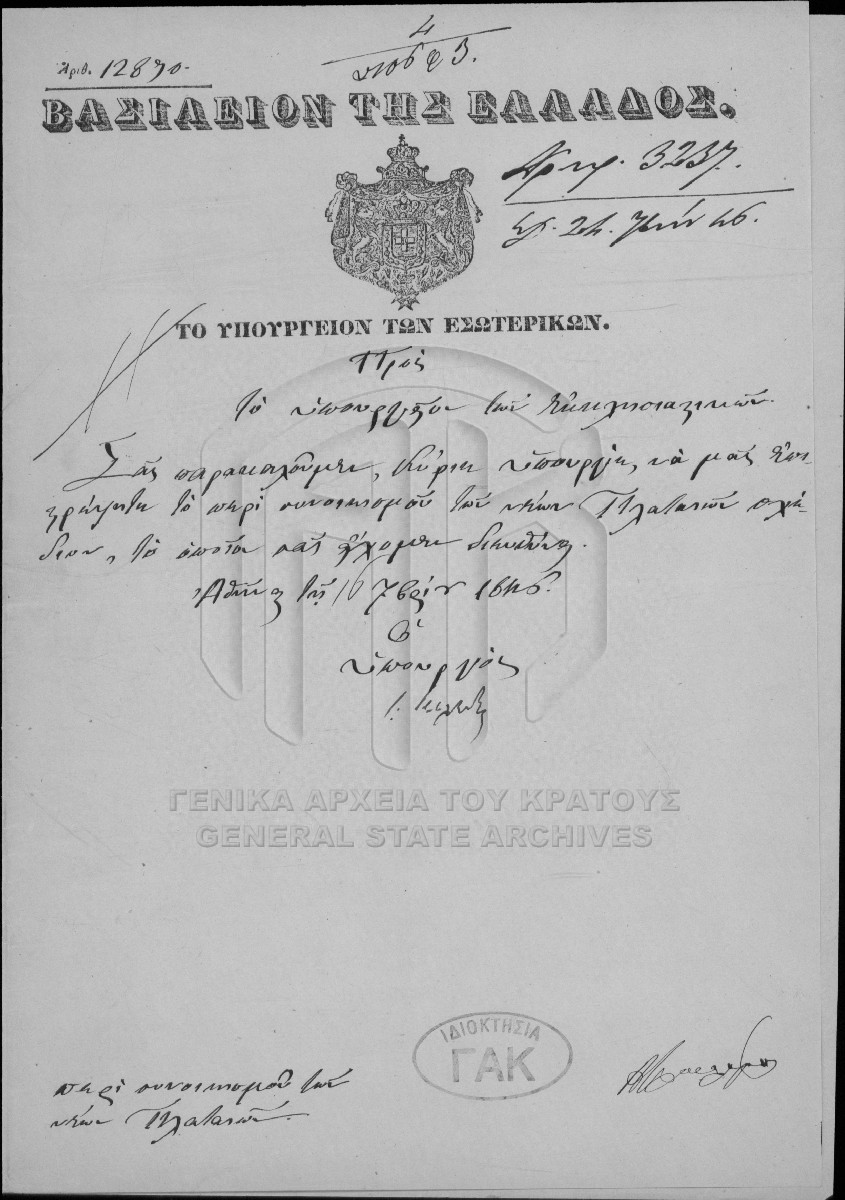 Ἀριθ. 12870.
4
ΒΑΣΙΛΕΙΟΝ ΤΗΣ ΕΛΛΑΔΟΣ.
3237.
24.
ΤΟ ΥΠΟΥΡΓΕΙΟΝ ΤΩΝ ΕΣΩΤΕΡΙΚΩΝ.
Πρὸς
τὸ ὑπουργεῖον τῶν Ἐκκλησιαστικῶν.
Σᾶς παρακαλοῦμεν, Κύριε Ὑπουργέ, νὰ μᾶς ἐπι-
στρέψητε τὸ περὶ συνοικισμοῦ τῶν νέων Πλαταιῶν σχέ-
διον, τὸ ὁποῖον σᾶς εἴχομεν διευθύνει.
Ἀθῆναι τῇ 16 7βρίου 1846.
Ὁ
ὑπουργὸς
ΓΕΝΙΚΑ ΑΡΧΕΙΑ ΤΟΥ ΚΡΑΤΟΥΣ
GENERAL STATE ARCHIVES
ΙΔΙΟΚΤΗΣΙΑ
ΓΑΚ
περὶ συνοικισμοῦ τῶν
νέων Πλαταιῶν.